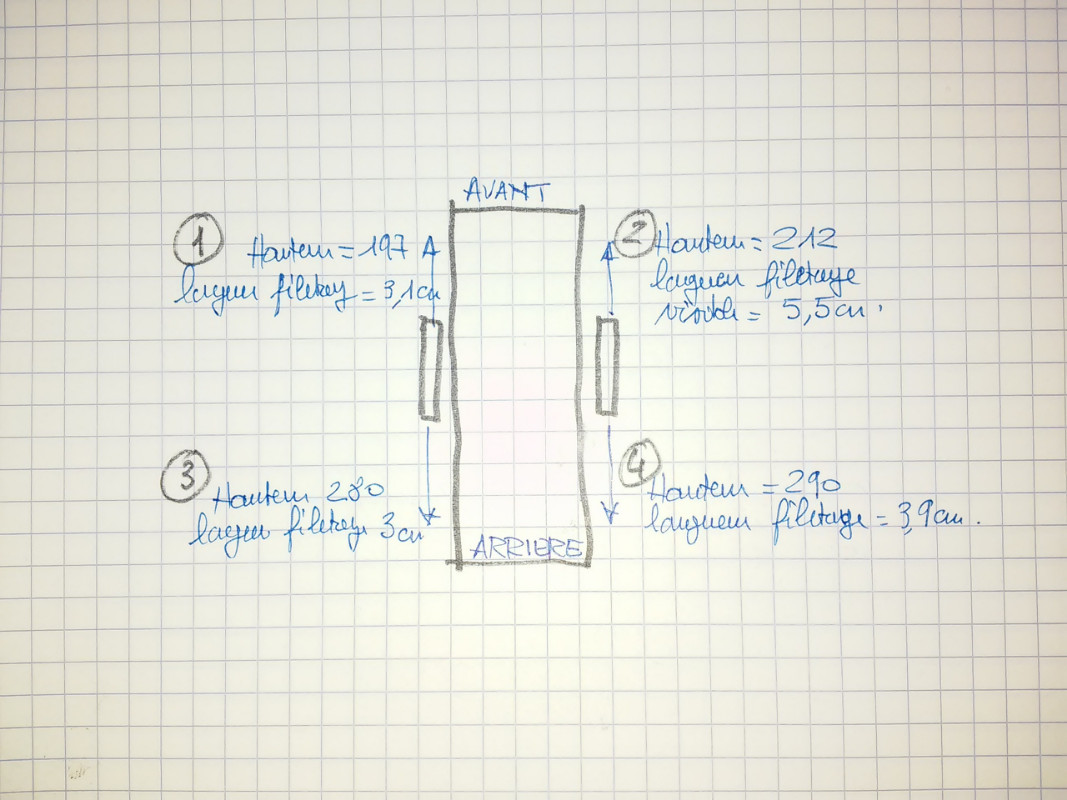 AVANT
1
Hauteur = 197
longueur filetage = 3,1cm
2
Hauteur = 212
longueur filetage
visible = 5,5cm.
3
Hauteur 280
longueur filetage 3cm
4
Hauteur = 290
longueur filetage = 3,9cm.
ARRIERE